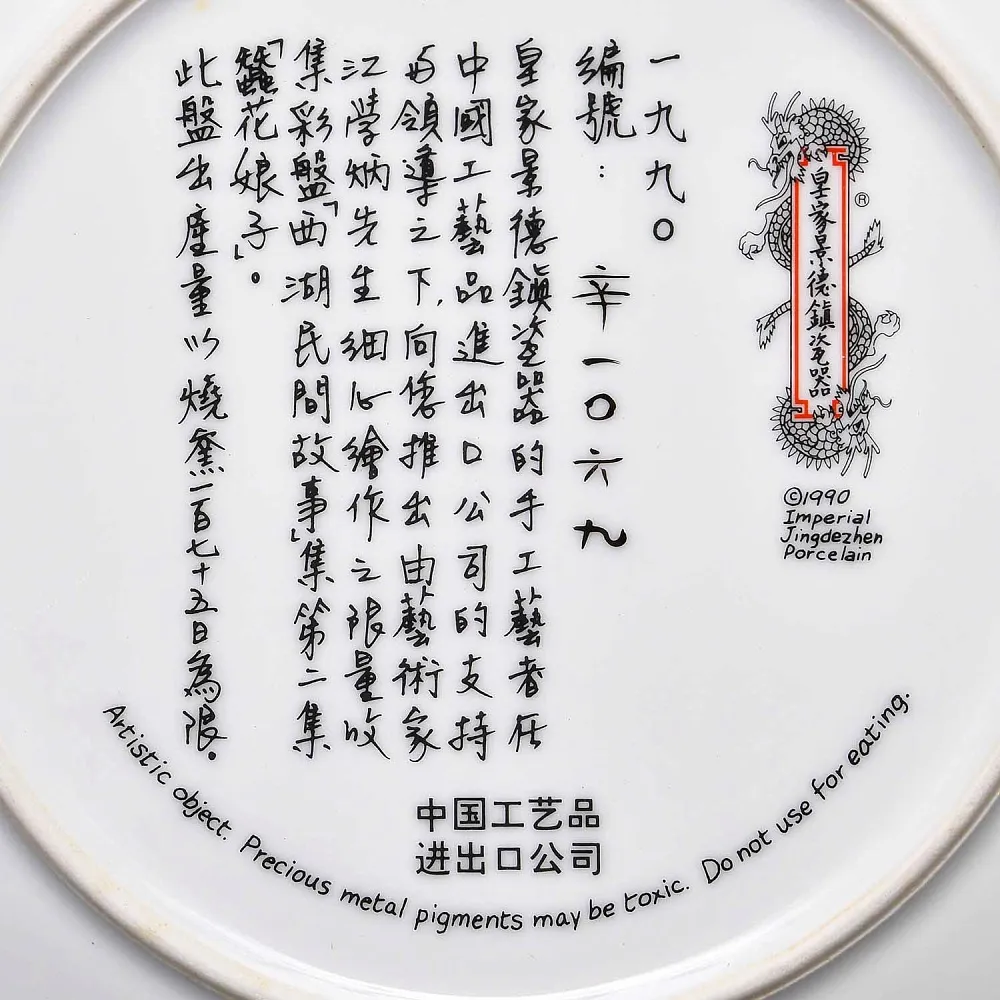 皇家景德鎮瓷器
®
©1990
Imperial
Jingdezhen
Porcelain
一九九〇
編號：辛一〇六九
皇家景德鎮瓷器的手工藝者在
中國工藝品進出口公司的支持
与領導之下,向您推出由藝術家
江學炳先生細心繪作之限量收
集彩盤「西湖民間故事」集第二集
「蠶花娘子」。
此盤出產量以燒窯一百七十五日為限。
中国工艺品
进出口公司
Artistic object. Precious metal pigments may be toxic. Do not use for eating.